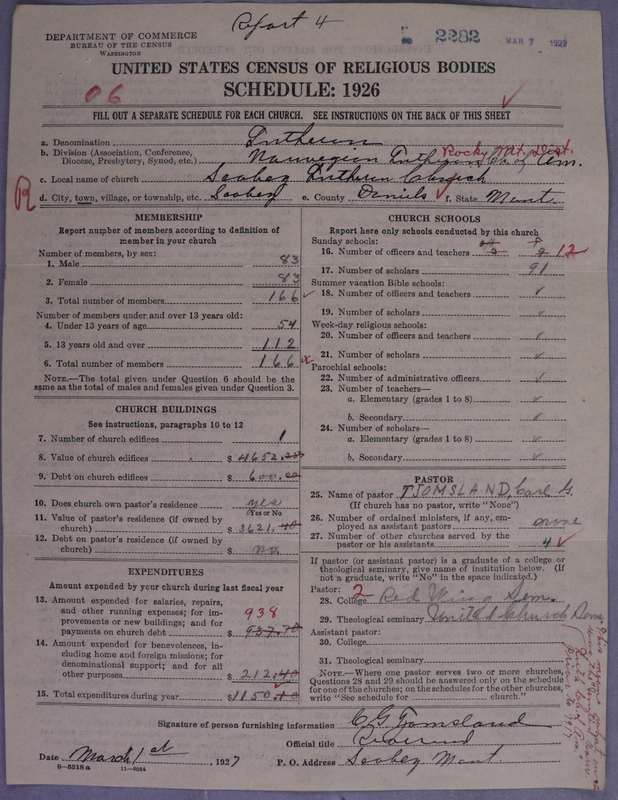 Report 4
DEPARTMENT OF COMMERCE
BUREAU OF THE CENSUS
WASHINGTON
2282 MAR 7 1927
UNITED STATES CENSUS OF RELIGIOUS BODIES
SCHEDULE: 1926
06
FILL OUT A SEPARATE SCHEDULE FOR EACH CHURCH. SEE INSTRUCTIONS ON THE BACK OF THIS SHEET
a. Denomination Lutheran
b. Division (Association, Conference, Diocese, Presbytery, Synod, etc.) Norwegian Lutheran Ch. of Am. Rocky Mt. Dist.
c. Local name of church Scobey Lutheran Church
R
d. City, town, village, or township, etc. Scobey e. County Daniels f. State Mont.
MEMBERSHIP
Report number of members according to definition of
member in your church
Number of members, by sex:
1. Male 83
2. Female 83
3. Total number of members 166
Number of members under and over 13 years old:
4. Under 13 years of age 54
5. 13 years old and over 112
6. Total number of members 166
NOTE.—The total given under Question 6 should be the
same as the total of males and females given under Question 3.
CHURCH BUILDINGS
See instructions, paragraphs 10 to 12
7. Number of church edifices 1
8. Value of church edifices $ 4652.
9. Debt on church edifices $ 600.00
10. Does church own pastor's residence? yes
(Yes or No)
11. Value of pastor's residence (if owned by
church) $ 3621.40
12. Debt on pastor's residence (if owned by
church) $ no.
EXPENDITURES
Amount expended by your church during last fiscal year
13. Amount expended for salaries, repairs,
and other running expenses; for im-
provements or new buildings; and for
payments on church debt $ 937.70 938
14. Amount expended for benevolences, in-
cluding home and foreign missions; for
denominational support; and for all
other purposes $ 212.40
15. Total expenditures during year $ 1150.10
CHURCH SCHOOLS
Report here only schools conducted by this church
Sunday schools:
16. Number of officers and teachers 12
17. Number of scholars 91
Summer vacation Bible schools:
18. Number of officers and teachers
19. Number of scholars
Week-day religious schools:
20. Number of officers and teachers
21. Number of scholars
Parochial schools:
22. Number of administrative officers
23. Number of teachers—
a. Elementary (grades 1 to 8)
b. Secondary
24. Number of scholars—
a. Elementary (grades 1 to 8)
b. Secondary
PASTOR
25. Name of pastor TJOMSLAND, Carl G.
(If church has no pastor, write "None")
26. Number of ordained ministers, if any, em-
ployed as assistant pastors none
27. Number of other churches served by the
pastor or his assistants 4
If pastor (or assistant pastor) is a graduate of a college or
theological seminary, give name of institution below. (If
not a graduate, write "No" in the space indicated.)
Pastor: 2
28. College Red Wing Sem.
29. Theological seminary United Church Sem.
Assistant pastor:
30. College
31. Theological seminary
NOTE.—Where one pastor serves two or more churches,
Questions 28 and 29 should be answered only on the schedule
for one of the churches; on the schedules for the other churches,
write "See schedule for church."
Signature of person furnishing information C. G. Tjomsland
Official title Reverend
Date March 1st, 1927 P. O. Address Scobey Mont.
8—5518a 11—9054